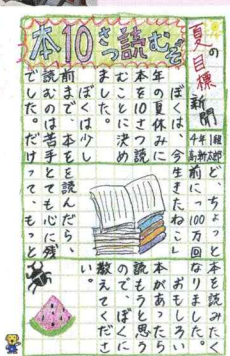 本10さつ読むぞ
夏の目標新聞
4年1組
ぼくは、今
年の夏休みに
本を10さつ読
むことに決め
ました。
ぼくは少し
前まで、本を
読むのは苦手
でした。だけ
ど、ちょっと
前に「100万回
生きたねこ」
を読んだら、
とても心に残
って、もっと
本を読みたく
なりました。
おもしろい
本があったら
読もうと思う
ので、ぼくに
教えてくださ
い。